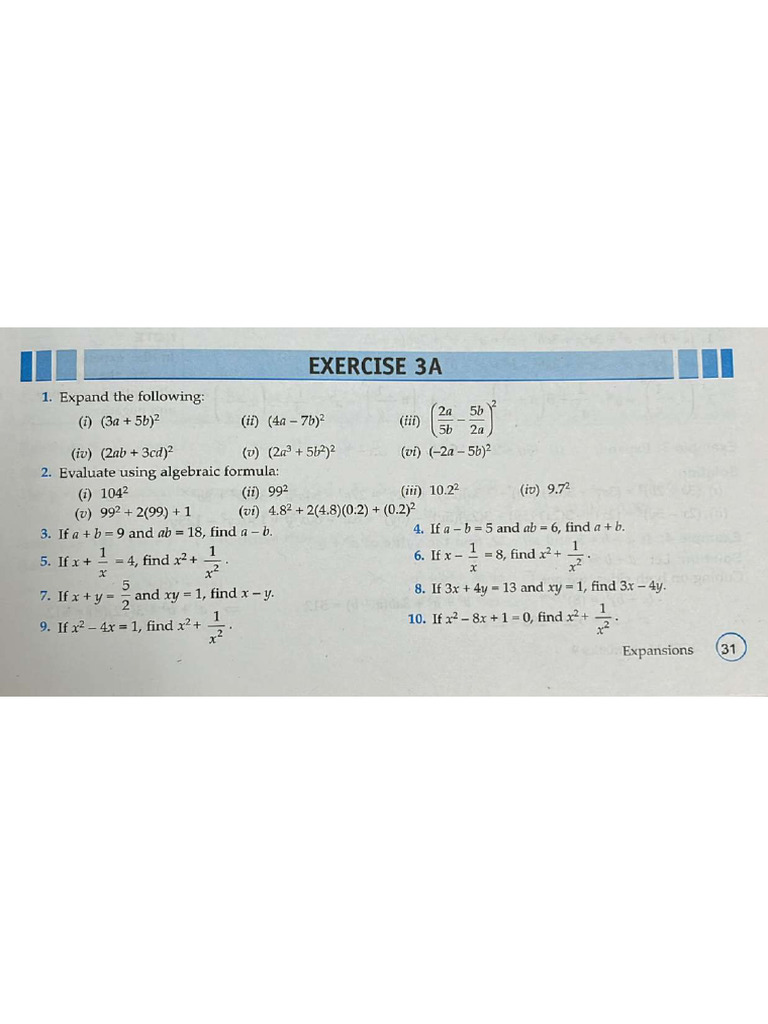 EXERCISE 3A
1. Expand the following:
(i) (3a + 5b)² (ii) (4a – 7b)² (iii) (2a/5b – 5b/2a)²
(iv) (2ab + 3cd)² (v) (2a³ + 5b²)² (vi) (–2a – 5b)²
2. Evaluate using algebraic formula:
(i) 104² (ii) 99² (iii) 10.2² (iv) 9.7²
(v) 99² + 2(99) + 1 (vi) 4.8² + 2(4.8)(0.2) + (0.2)²
3. If a + b = 9 and ab = 18, find a – b. 4. If a – b = 5 and ab = 6, find a + b.
5. If x + 1/x = 4, find x² + 1/x². 6. If x – 1/x = 8, find x² + 1/x².
7. If x + y = 5/2 and xy = 1, find x – y. 8. If 3x + 4y = 13 and xy = 1, find 3x – 4y.
9. If x² – 4x = 1, find x² + 1/x². 10. If x² – 8x + 1 = 0, find x² + 1/x².
Expansions 31